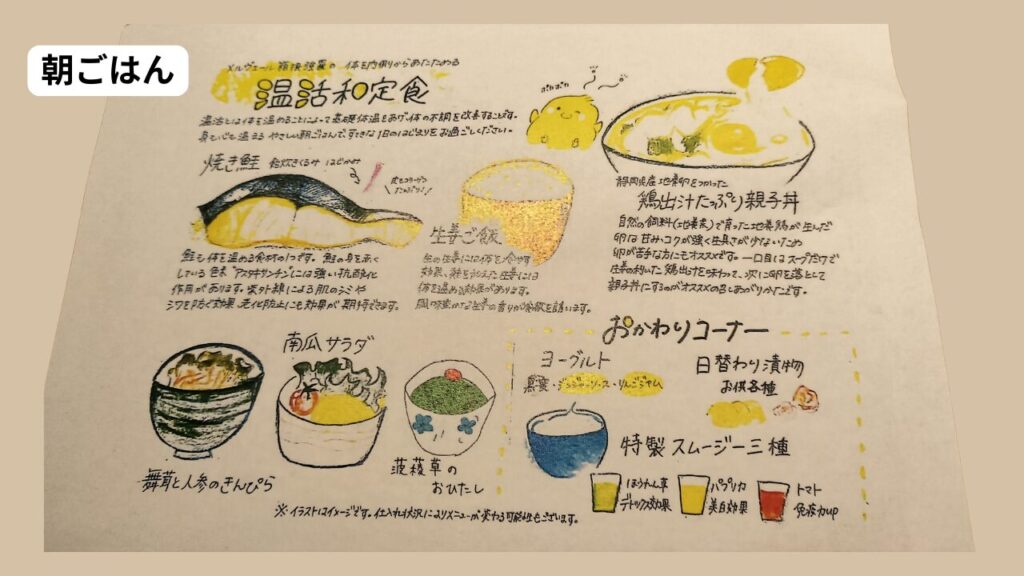 朝ごはん
メルヴェール箱根強羅の 体を内側からあたためる
温活和定食
温活とは体を温めることによって基礎体温をあげ体の不調を改善することです。
身も心も温まる やさしい朝ごはんで、すてきな1日のはじまりをお過ごしください。
ぽかぽか
焼き鮭 飴炊きくるみ はじかみ
皮もコラーゲンたっぷり!
鮭も体を温める食材の1つです。鮭の身を赤く
している色素 "アスタキサンチン"には強い抗酸化
作用があります。紫外線による肌のシミや
シワを防ぐ効果、老化防止にも効果が期待できます。
生姜ご飯
生の生姜には体を冷やす
効果、熱を加えた生姜には
体を温める効果があります。
風味豊かな生姜の香りが食欲を誘います。
静岡県産地養卵をつかった
鶏出汁たっぷり親子丼
自然の飼料(地養素)で育った地養鶏が生んだ
卵は甘み・コクが強く生臭さが少ないため
卵が苦手な方にもオススメです。一口目はスープだけで
生姜の利いた鶏出汁を味わって、次に卵を落として
親子丼にするのがオススメの召しあがりかたです。
舞茸と人参のきんぴら
南瓜サラダ
菠薐草の
おひたし
おかわりコーナー
ヨーグルト
黒蜜・ジンジャーソース・りんごジャム
日替わり漬物
お供各種
特製スムージー三種
ほうれん草
デトックス効果
パプリカ
美白効果
トマト
免疫力up
※イラストはイメージです。仕入れ状況によりメニューが変わる可能性もございます。